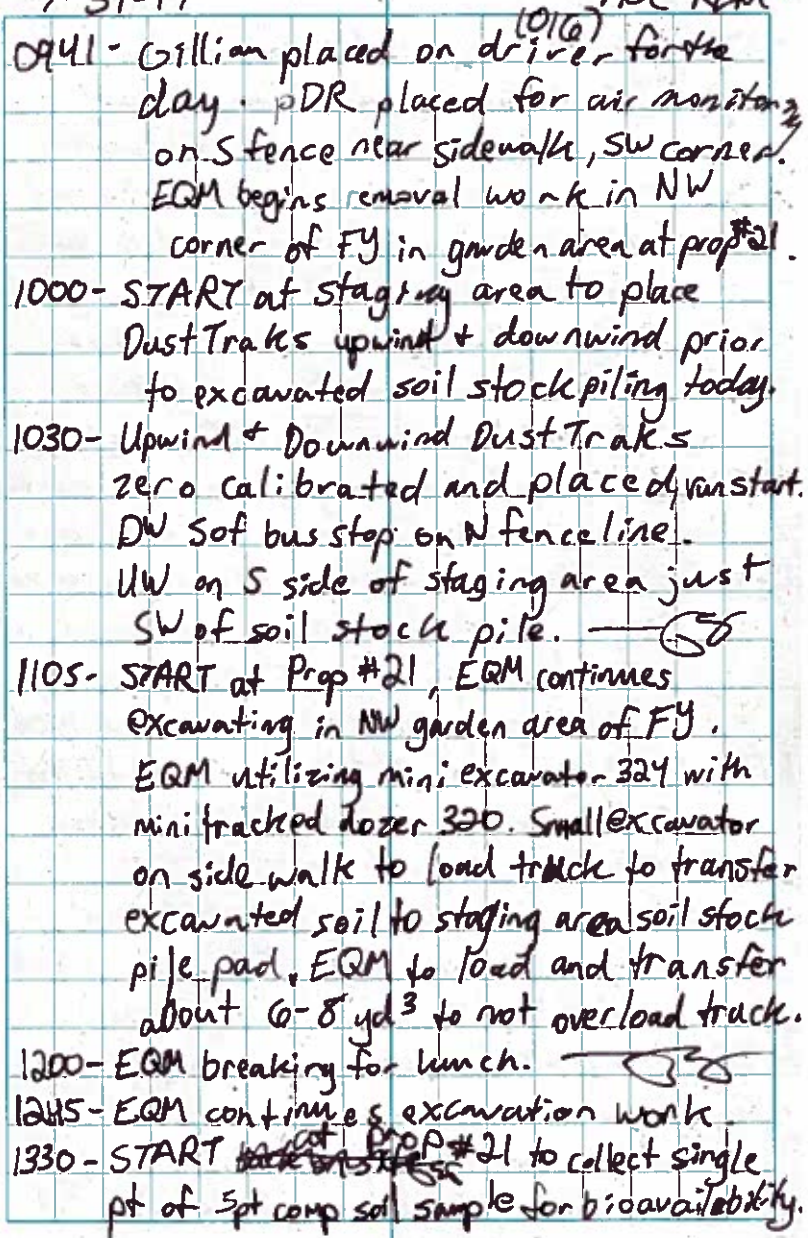 (016)
0941- Gillian placed on driver for the
day. pDR placed for air monitoring
on S fence near sidewalk, SW corner.
EQM begins removal work in NW
corner of FY in garden area at prop #21.
1000- START at staging area to place
DustTraks upwind + downwind prior
to excavated soil stockpiling today.
1030- Upwind + Downwind DustTraks
zero calibrated and placed, run start.
DW S of bus stop on N fenceline.
UW on S side of staging area just
SW of soil stock pile.
1105- START at Prop #21, EQM continues
excavating in NW garden area of FY.
EQM utilizing mini excavator 324 with
mini tracked dozer 320. Small excavator
on sidewalk to load truck to transfer
excavated soil to staging area soil stock
pile pad. EQM to load and transfer
about 6-8 yd³ to not overload truck.
1200- EQM breaking for lunch.
1245- EQM continues excavation work.
1330- START at Prop #21 to collect single
pt of 5pt comp soil sample for bioavailability.